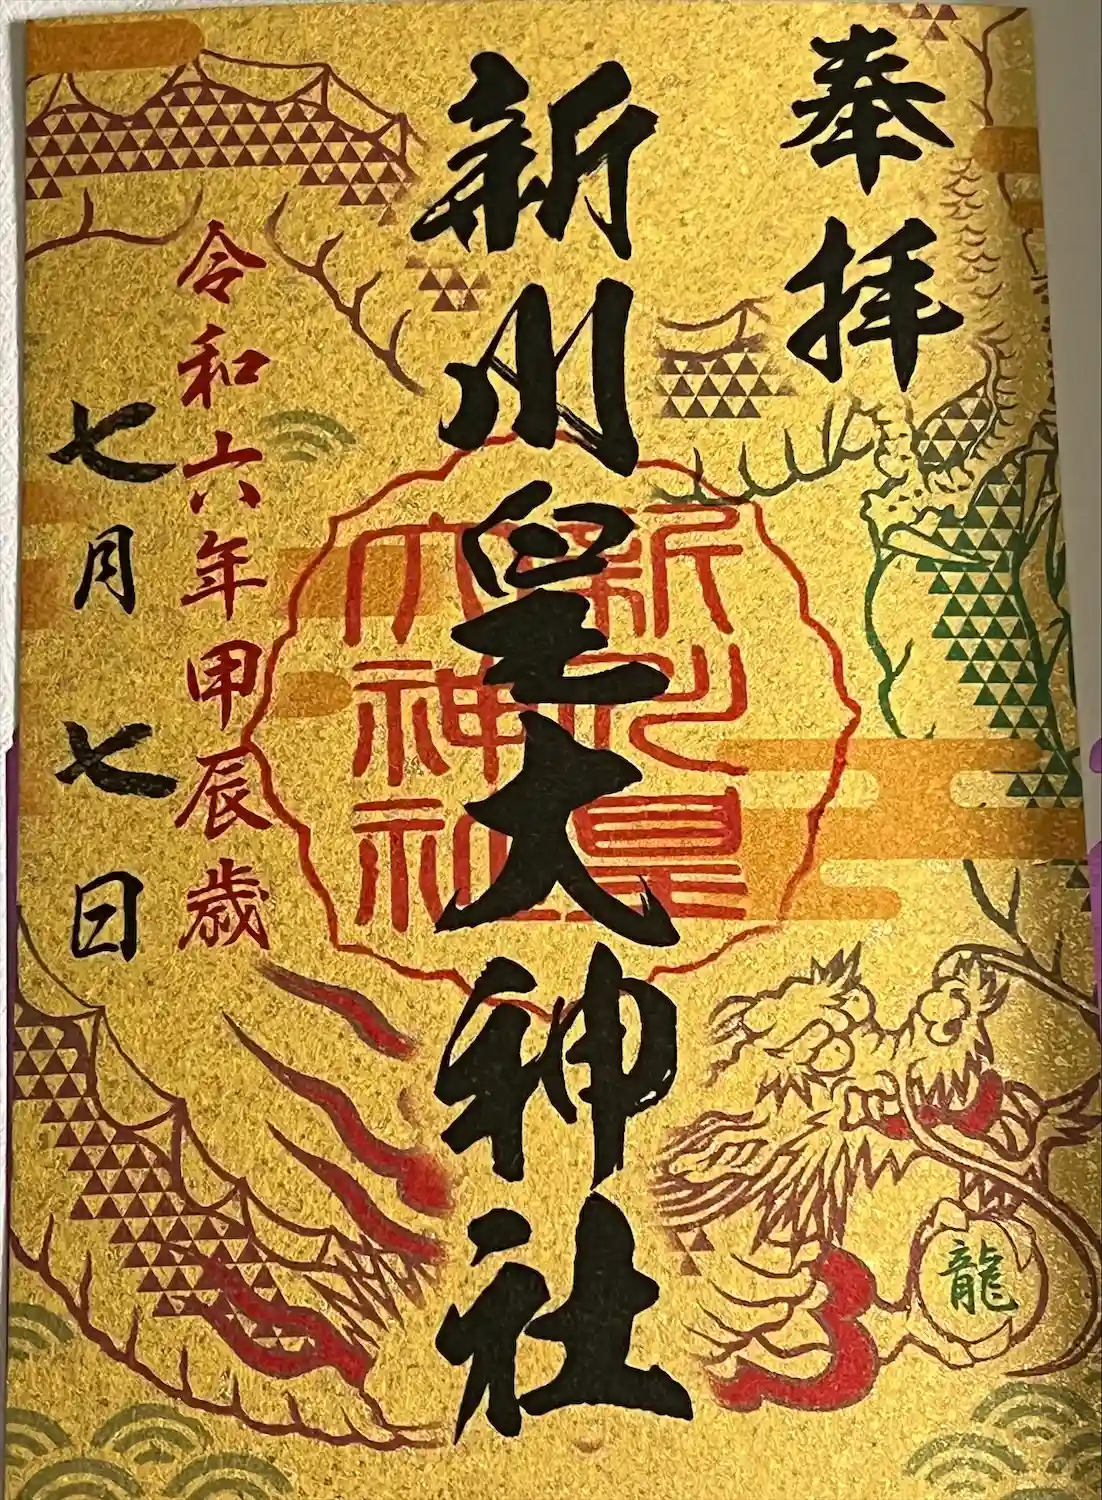 奉拝
新川皇大神社
新川皇
大神社
令和六年甲辰歳
七月七日
龍